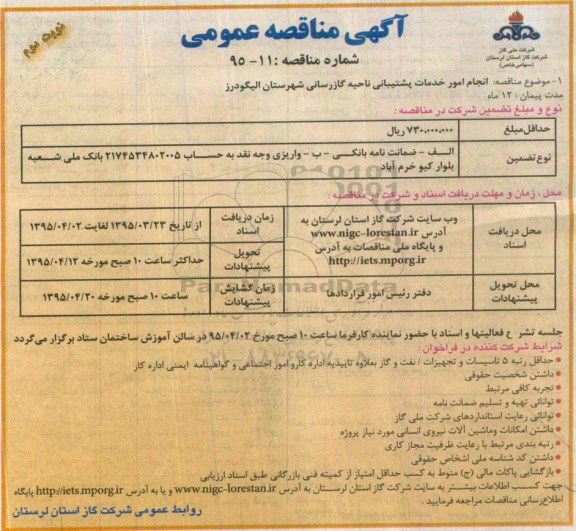 شرکت ملی گاز
شرکت گاز استان لرستان
(سهامی خاص)
آگهی مناقصه عمومی
نوبت دوم
شماره مناقصه : ۱۱- ۹۵
۱-موضوع مناقصه: انجام امور خدمات پشتیبانی ناحیه گازرسانی شهرستان الیگودرز
مدت پیمان : ۱۲ ماه
نوع و مبلغ تضمین شرکت در مناقصه :
حداقل مبلغ
۷۳۰.۰۰۰.۰۰۰ ریال
نوع تضمین
الف - ضمانت نامه بانکی - ب - واریزی وجه نقد به حساب ۲۱۷۴۵۳۴۸۰۲۰۰۵ بانک ملی شعبه
بلوار کیو خرم آباد
محل ، زمان و مهلت دریافت اسناد و شرکت در مناقصه :
محل دریافت اسناد
وب سایت شرکت گاز استان لرستان به
آدرس www.nigc-lorestan.ir
و پایگاه ملی مناقصات به آدرس
http://iets.mporg.ir
زمان دریافت اسناد
از تاریخ ۱۳۹۵/۰۳/۲۳ لغایت ۱۳۹۵/۰۴/۰۲
تحویل پیشنهادات
حداکثر ساعت ۱۰ صبح مورخه ۱۳۹۵/۰۴/۱۲
محل تحویل پیشنهادات
دفتر رئیس امور قراردادها
زمان گشایش پیشنهادات
ساعت ۱۰ صبح مورخه ۱۳۹۵/۰۴/۲۰
جلسه تشریح فعالیتها و اسناد با حضور نماینده کارفرما ساعت ۱۰ صبح مورخ ۹۵/۰۴/۰۲ در سالن آموزش ساختمان ستاد برگزار می گردد
شرایط شرکت کننده در فراخوان :
• حداقل رتبه ۵ تاسیسات و تجهیزات / نفت و گاز بعلاوه تاییدیه اداره کار و امور اجتماعی و گواهینامه ایمنی اداره کار
• داشتن شخصیت حقوقی
• تجربه کافی مرتبط
• توانائی تهیه و تسلیم ضمانت نامه
• توانائی رعایت استانداردهای شرکت ملی گاز
• داشتن امکانات وماشین آلات نیروی انسانی مورد نیاز پروژه
• رتبه بندی مرتبط با رعایت ظرفیت مجاز کاری
• داشتن کد شناسه ملی اشخاص حقوقی
• بازگشایی پاکات مالی (ج) منوط به کسب حداقل امتیاز از کمیته فنی بازرگانی طبق اسناد ارزیابی
جهت کسب اطلاعات بیشتر به سایت شرکت گاز استان لرستان به آدرس www.nigc-lorestan.ir و یا به آدرس http://iets.mporg.ir پایگاه
اطلاع رسانی مناقصات مراجعه فرمایید .
روابط عمومی شرکت گاز استان لرستان